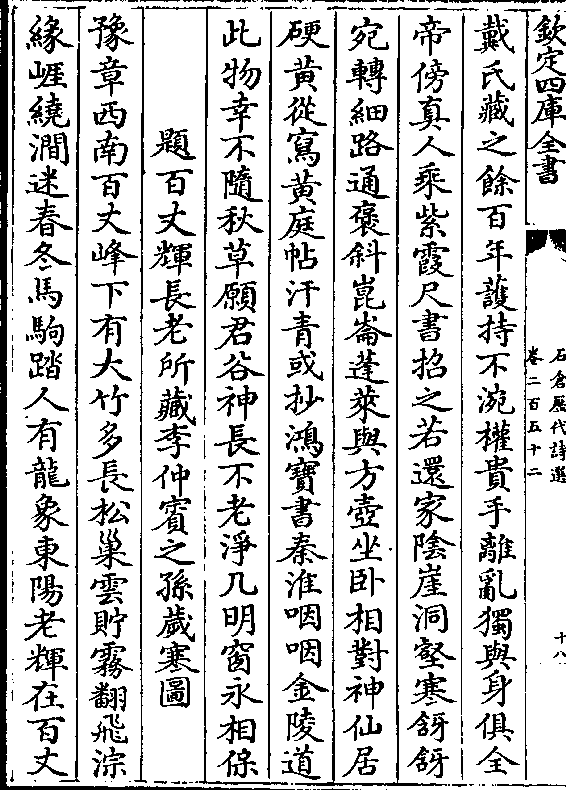 欽定四庫全書
石倉歷代詩選
卷二百五十二
十八
戴氏藏之餘百年護持不涴權貴手離亂獨與身俱全
帝傍真人乘紫霞尺書招之若還家陰崖洞壑寒谺谺
宛轉細路通褒斜崑崙蓬萊與方壺坐卧相對神仙居
硬黄從寫黄庭帖汗青或抄鴻寶書秦淮咽咽金陵道
此物幸不隨秋草願君谷神長不老淨几明窗永相保
題百丈輝長老所藏李仲賓之孫歲寒圖
豫章西南百丈峰下有大竹多長松巢雲貯霧翻飛淙
緣崕繞澗迷春冬馬駒踏人有龍象東陽老輝在百丈